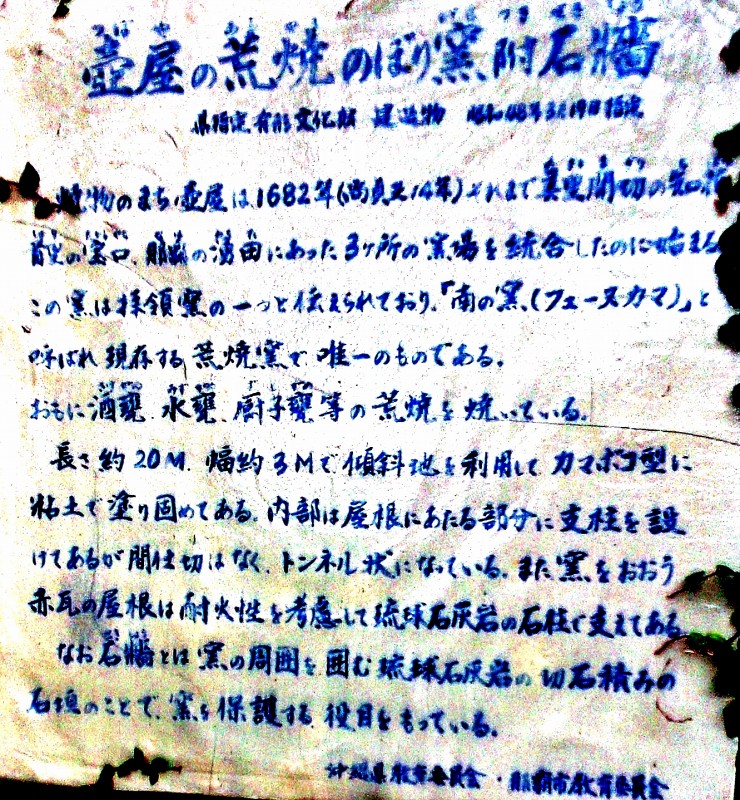 壺屋の荒焼のぼり窯附石牆
県指定有形文化財 建造物 昭和48年3月19日指定
焼物のまち壺屋は、1682年(尚貞王14年)それまで美里間切の知花
首里の宝口、那覇の湧田にあった3ヶ所の窯場を統合したのに始まる
この窯は拝領窯の一つと伝えられており、「南の窯、(フェーヌカマ)」と
呼ばれ現存する荒焼窯で唯一のものである。
おもに酒甕、水甕、厨子甕等の荒焼を焼いている。
長さ約20M、幅約3Mで傾斜地を利用してカマボコ型に
粘土で塗り固めてある。内部は屋根にあたる部分に支柱を設
けてあるが間仕切はなく、トンネル状になっている。また窯をおおう
赤瓦の屋根は耐火性を考慮して琉球石灰岩の石柱で支えてある
なお石牆とは窯の周囲を囲む琉球石灰岩の切石積みの
石垣のことで、窯を保護する役目をもっている。
沖縄県教育委員会・那覇市教育委員会